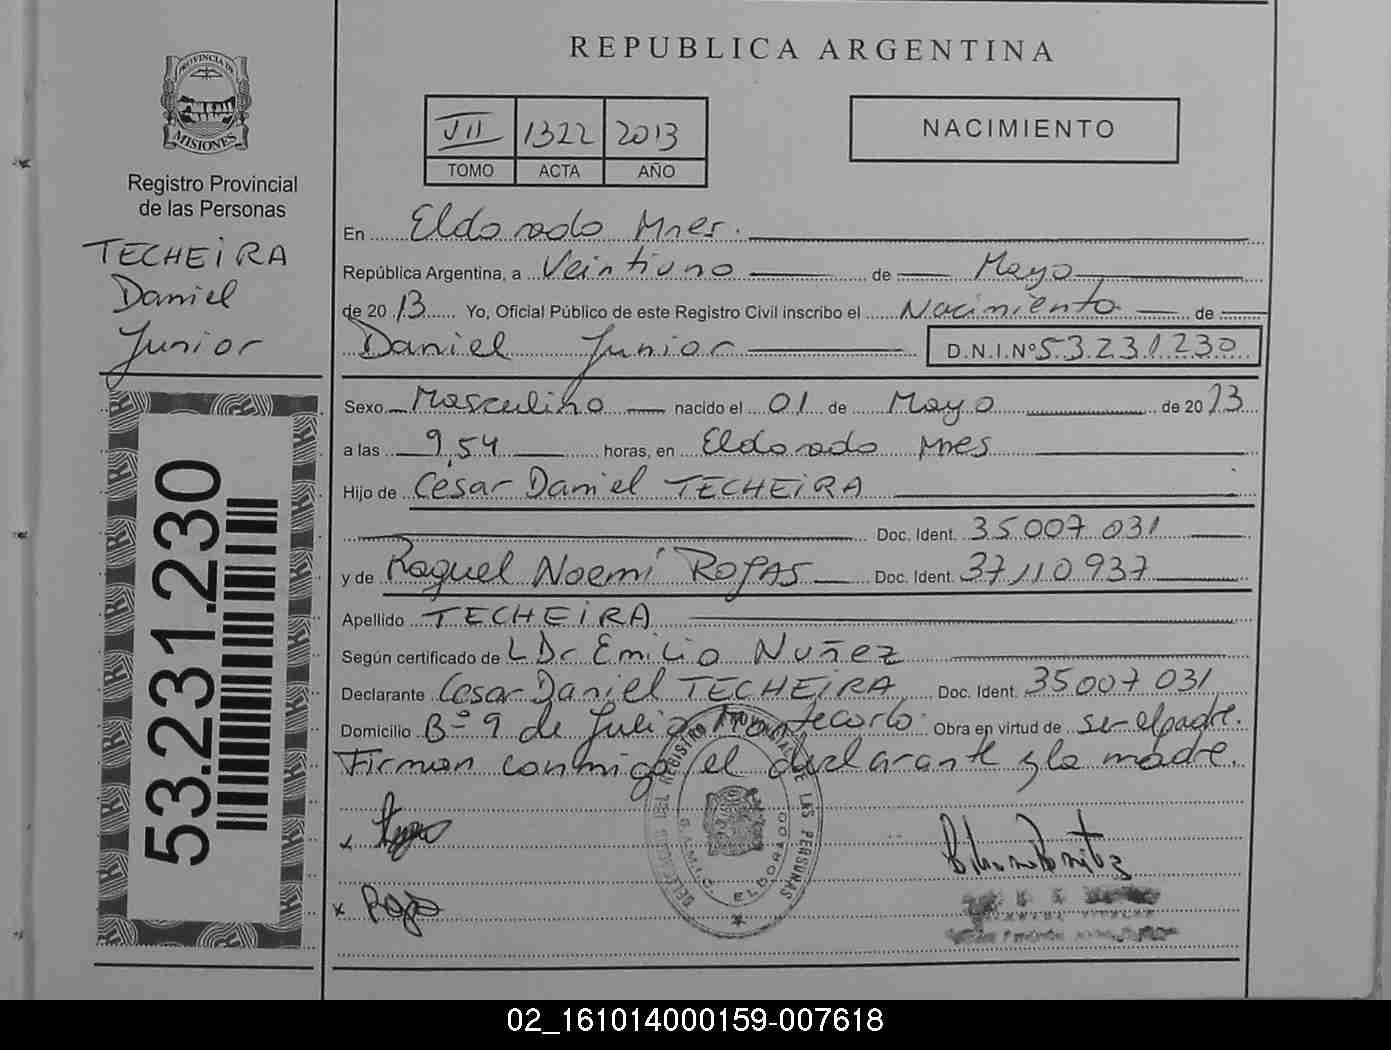 PROVINCIA DE
MISIONES
Registro Provincial
de las Personas
TECHEIRA
Daniel
Junior
53.231.230
REPUBLICA ARGENTINA
VII 1322 2013
TOMO ACTA AÑO
NACIMIENTO
En Eldorado Mnes.
República Argentina, a Veintiuno de Mayo
de 2013 Yo, Oficial Público de este Registro Civil inscribo el Nacimiento de
Daniel Junior D.N.I.Nº 53.231.230
Sexo Masculino nacido el 01 de Mayo de 2013
a las 9,54 horas, en Eldorado Mnes
Hijo de César Daniel TECHEIRA
Doc. Ident. 35.007.031
y de Raquel Noemí ROJAS Doc. Ident. 37.110.937
Apellido TECHEIRA
Según certificado de Dr Emilio Nuñez
Declarante César Daniel TECHEIRA Doc. Ident. 35007031
Domicilio Bº 9 de Julio Montecarlo. Obra en virtud de ser el padre.
Firman conmigo el declarante y la madre.
REGISTRO PROVINCIAL DE LAS PERSONAS
ELDORADO
02_161014000159-007618